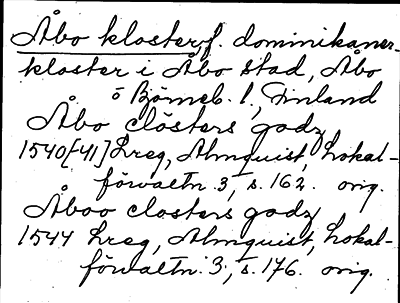 Åbo kloster, f. dominikaner-
kloster i Åbo stad, Åbo
o Björneb. l., Finland
Åbo clösters godz
1540[-41] hreg, Almquist, Lokal-
förvaltn. 3, s. 162. orig.
Åboo closters godz
1544 hreg, Almquist, Lokal-
förvaltn. 3, s. 176. orig.